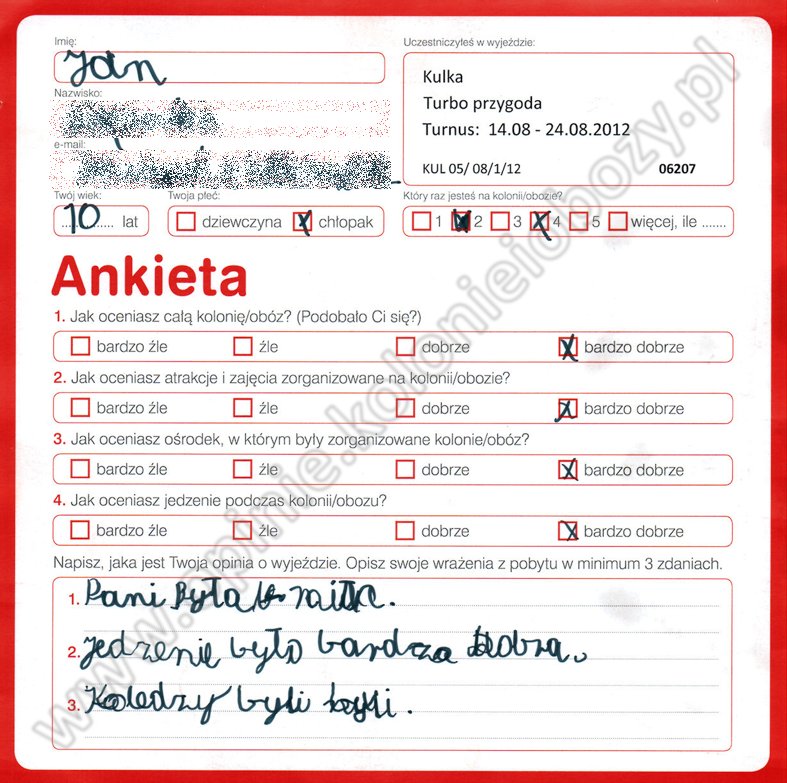 Imię:
Jan
Uczestniczyłeś w wyjeździe:
Kulka
Turbo przygoda
Turnus: 14.08 - 24.08.2012
KUL 05/ 08/1/12 06207
Nazwisko:
e-mail:
Twój wiek:
10 lat
Twoja płeć:
dziewczyna chłopak
Który raz jesteś na kolonii/obozie?
1 2 3 4 5 więcej, ile .......
Ankieta
1. Jak oceniasz całą kolonię/obóz? (Podobało Ci się?)
bardzo źle źle dobrze bardzo dobrze
2. Jak oceniasz atrakcje i zajęcia zorganizowane na kolonii/obozie?
bardzo źle źle dobrze bardzo dobrze
3. Jak oceniasz ośrodek, w którym były zorganizowane kolonie/obóz?
bardzo źle źle dobrze bardzo dobrze
4. Jak oceniasz jedzenie podczas kolonii/obozu?
bardzo źle źle dobrze bardzo dobrze
Napisz, jaka jest Twoja opinia o wyjeździe. Opisz swoje wrażenia z pobytu w minimum 3 zdaniach.
1. Pani była
2. jedzenie było bardza dobra.
3. Koledzy byli
www.opinie.kolonieiobozy.pl